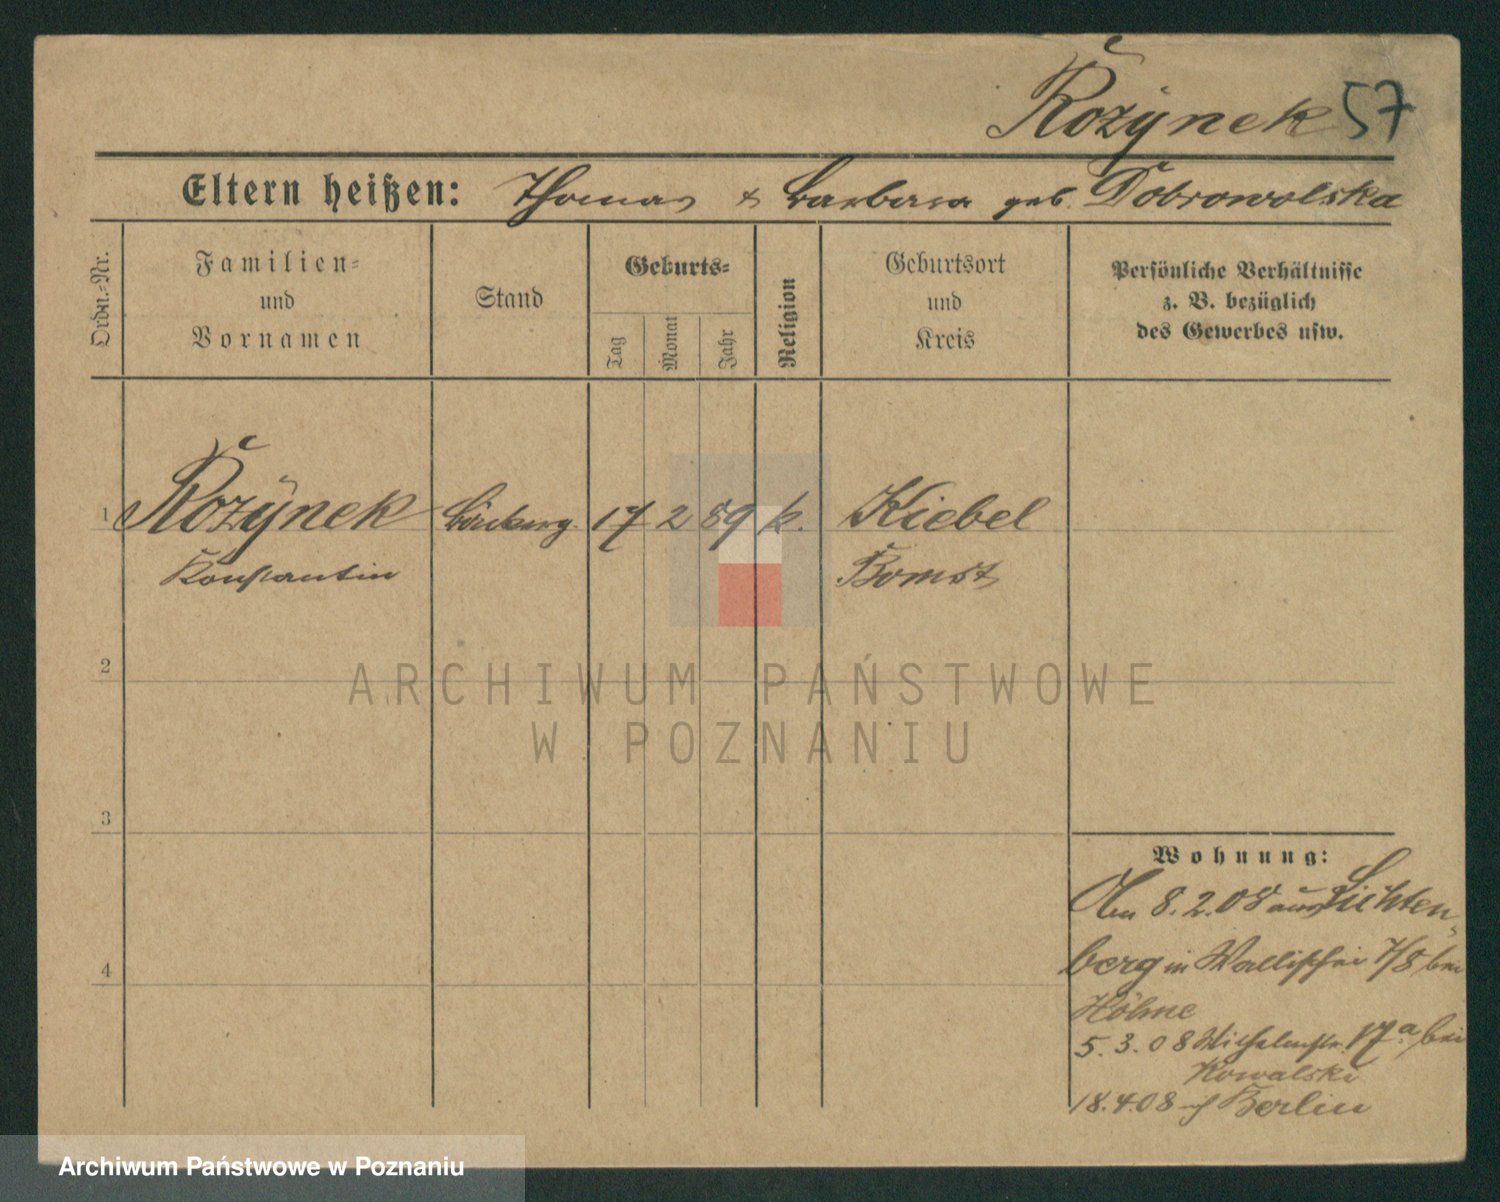 Rożynek 57
Eltern heißen: Thomas & Barbara geb. Dobrowolska
Ordn.-Nr.
Familien-
und
Vornamen
Stand
Geburts-
Tag
Monat
Jahr
Religion
Geburtsort
und
Kreis
Persönliche Verhältnisse
z. B. bezüglich
des Gewerbes usw.
1 Rożynek 17 2 89 k. Kiebel
Konstantin Bomst
2
ARCHIWUM PAŃSTWOWE
W POZNANIU
3
Wohnung:
Am 8.2.08 aus Lichten-
4 berg in Wallischei 7/8 bei
Höhne
5.3.08 Wilhelmstr. 17a bei
Kowalski
18.4.08 Berlin
Archiwum Państwowe w Poznaniu